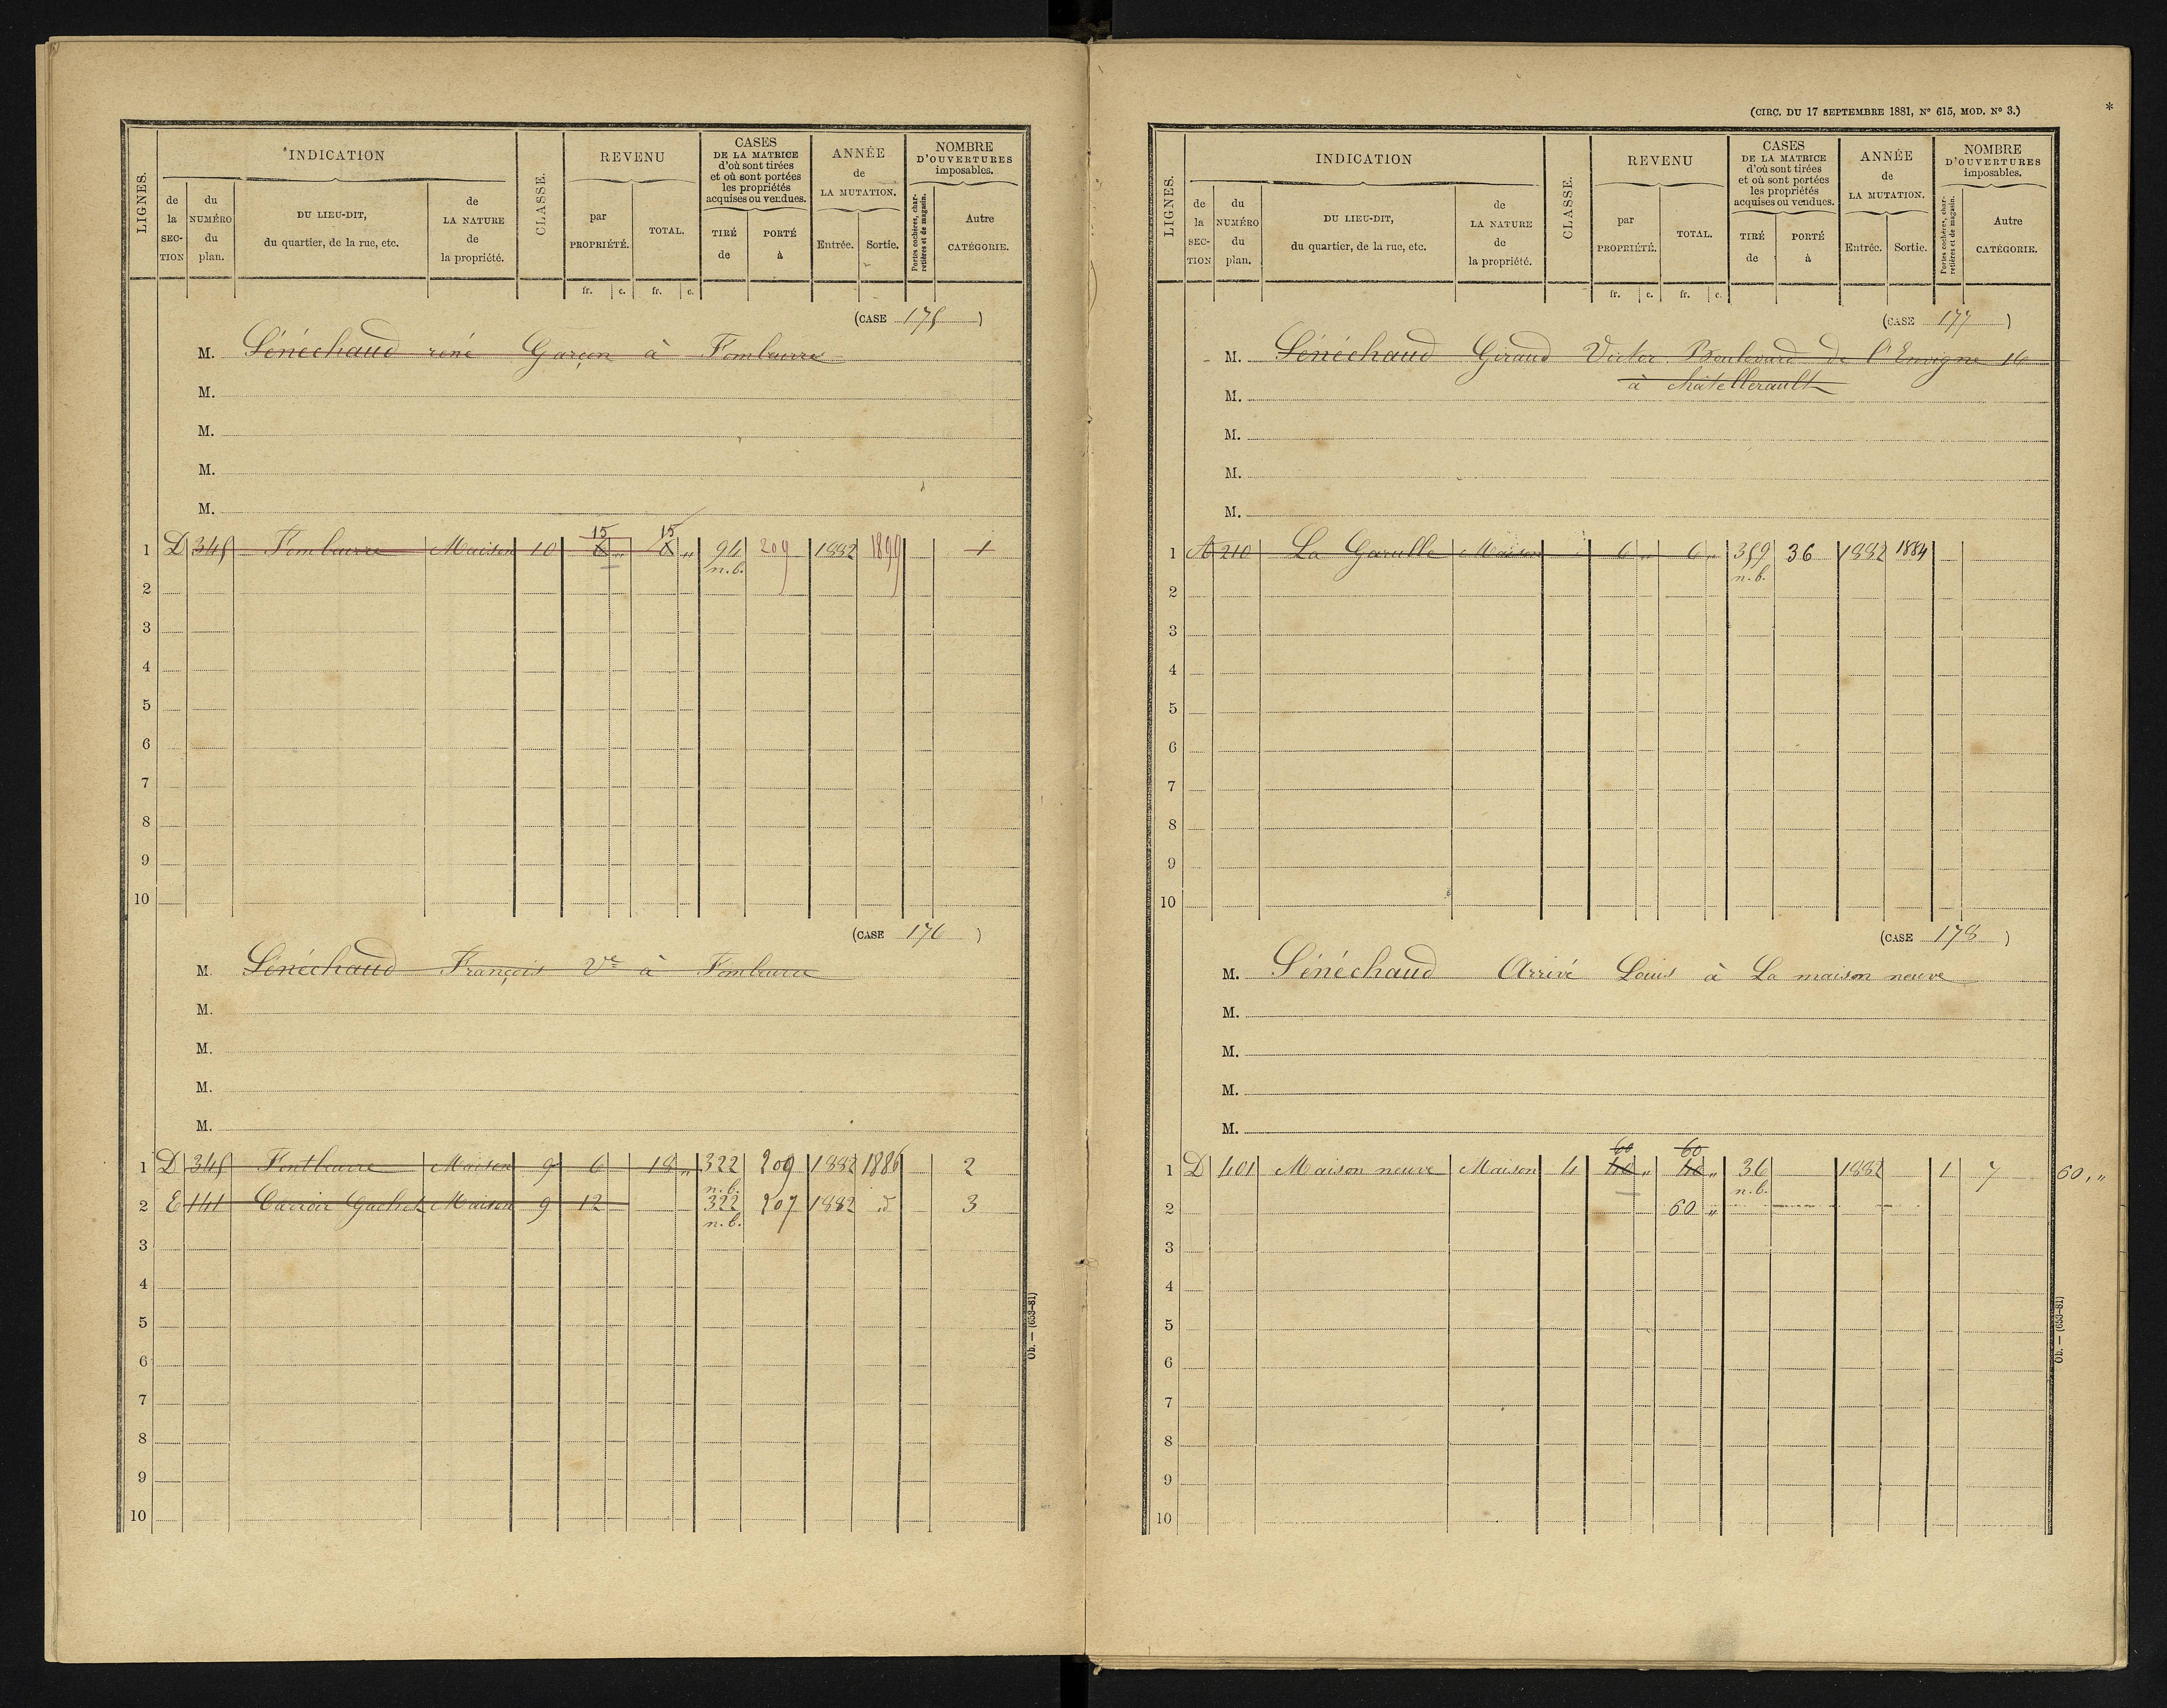 LIGNES.
INDICATION
de la SECTION
du NUMÉRO du plan.
DU LIEU-DIT, du quartier, de la rue, etc.
de LA NATURE de la propriété.
CLASSE.
REVENU
par PROPRIÉTÉ.
TOTAL.
fr. c. fr. c.
CASES DE LA MATRICE d'où sont tirées et où sont portées les propriétés acquises ou vendues.
TIRÉ de
PORTÉ à
ANNÉE de LA MUTATION.
Entrée. Sortie.
NOMBRE D'OUVERTURES imposables.
Portes cochères, charretières et de magasin.
Autre CATÉGORIE.
(CASE 175)
M. Sénéchaud réné Garçon à
M.
M.
M.
M.
15 15
1 D 345 Maison 10 8 " 8 " 94 209 1882 1899 1
n.b.
2
3
4
5
6
7
8
9
10
(CASE 176)
M. Sénéchaud François Ve à
M.
M.
M.
M.
1 D 345 Maison 9 6 18 " 322 209 1882 1886 2
n.b.
2 E 141 Carroir Gachet Maison 9 12 322 207 1882 d 3
n.b.
3
4
5
6
7
8
9
10
Ob. — (653-81)
(CIRC. DU 17 SEPTEMBRE 1881, N° 615, MOD. N° 3.)
*
LIGNES.
INDICATION
de la SECTION
du NUMÉRO du plan.
DU LIEU-DIT, du quartier, de la rue, etc.
de LA NATURE de la propriété.
CLASSE.
REVENU
par PROPRIÉTÉ.
TOTAL.
fr. c. fr. c.
CASES DE LA MATRICE d'où sont tirées et où sont portées les propriétés acquises ou vendues.
TIRÉ de
PORTÉ à
ANNÉE de LA MUTATION.
Entrée. Sortie.
NOMBRE D'OUVERTURES imposables.
Portes cochères, charretières et de magasin.
Autre CATÉGORIE.
(CASE 177)
M. Sénéchaud Giraud Victor Boulevard de l'Envigne 16
à châtellerault
M.
M.
M.
M.
1 A 210 La Maison 6 " 6 " 359 36 1882 1884
n.b.
2
3
4
5
6
7
8
9
10
(CASE 178)
M. Sénéchaud Arrivé Louis à La maison neuve
M.
M.
M.
M.
60 60
1 D 401 Maison neuve Maison 4 40 " 40 " 36 1882 1 7 60, "
n.b.
2 60 "
3
4
5
6
7
8
9
10
Ob. — (653-81)